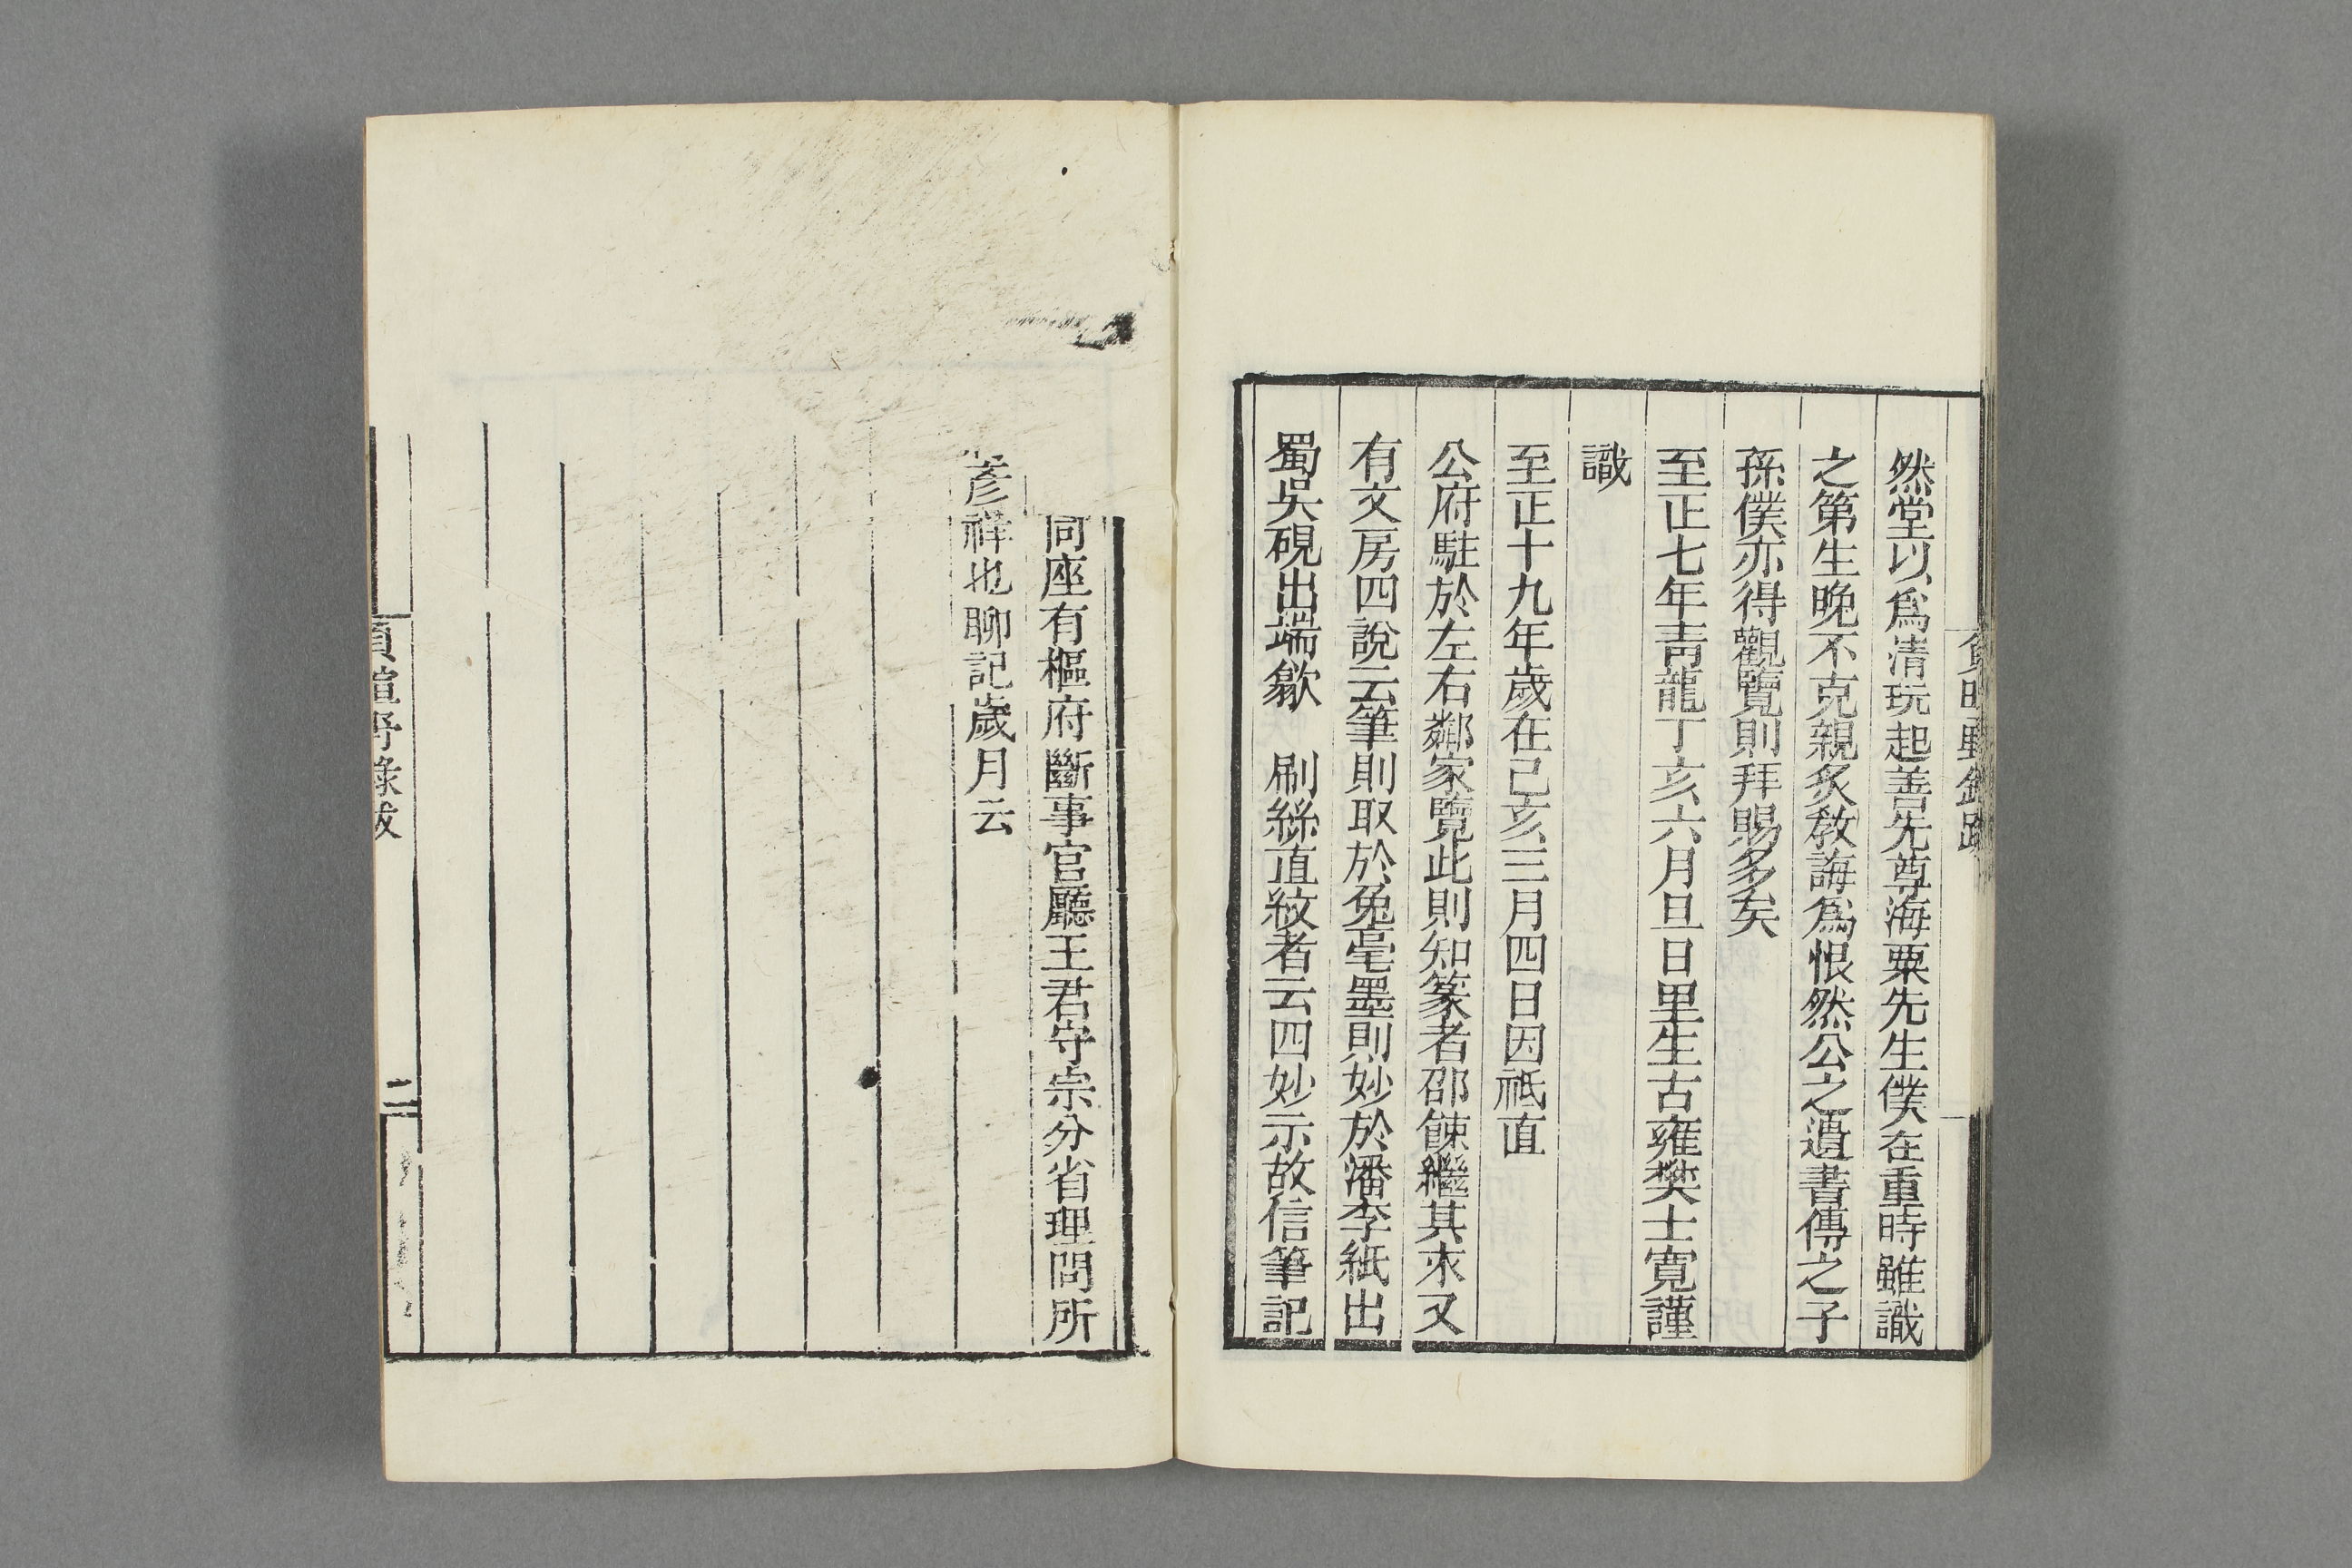 然堂以爲清玩起善先尊海粟先生僕在重時雖識
之第生晚不克親炙敎誨爲恨然公之遺書傳之子
孫僕亦得觀覽則拜賜多矣
至正七年青龍丁亥六月旦日里生古雍樊士寛謹
識
至正十九年歲在己亥三月四日因祗直
公府駐於左右鄰家覽此則知篆者邵餗繼其末又
有文房四說云筆則取於兔毫墨則妙於潘李紙出
蜀吳硯出端歙 刷絲直紋者云四妙示故信筆記
同座有樞府斷事官廳王君守宗分省理問所
彥祥也聊記歲月云
負暄野錄跋
二